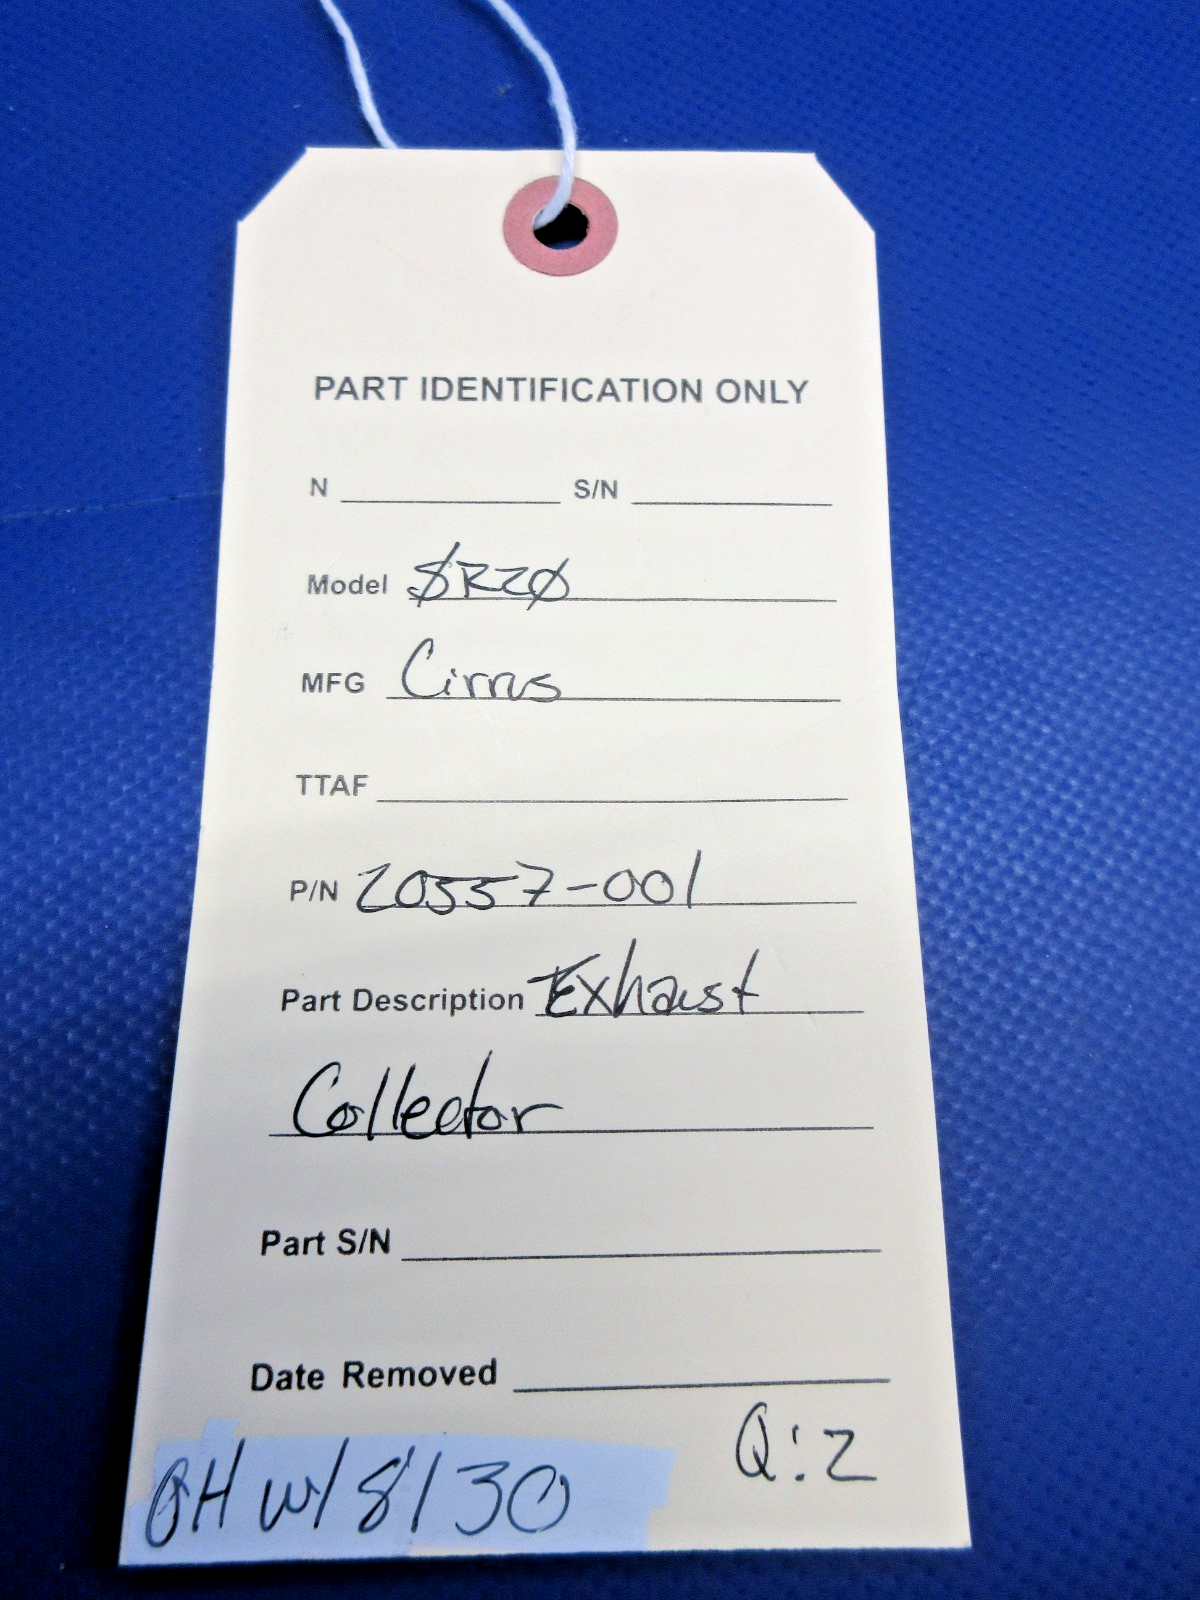 PART IDENTIFICATION ONLY
N S/N
Model SR20
MFG Cirrus
TTAF
P/N 20557-001
Part Description Exhaust
Collector
Part S/N
Date Removed
Q:2
OH w/ 8130